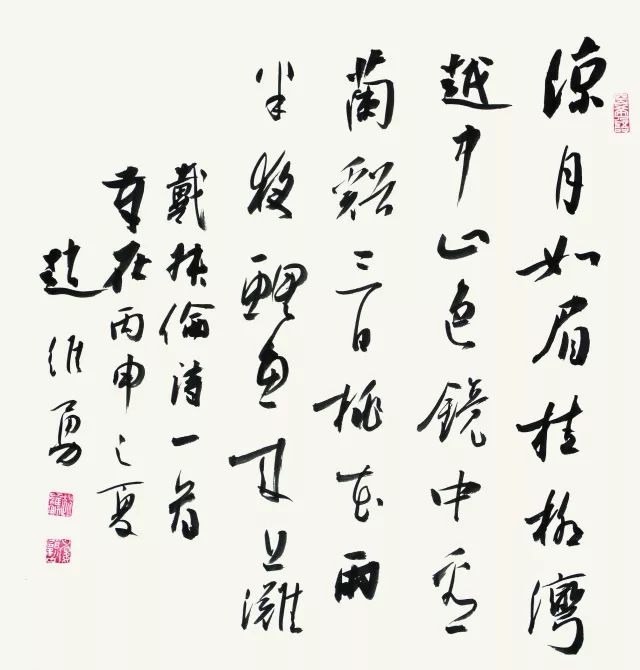 涼月如眉挂柳灣
越中山色鏡中看
蘭谿三日桃花雨
半夜鯉魚來上灘
戴叔倫詩一首
歲在丙申之夏
趙維勇